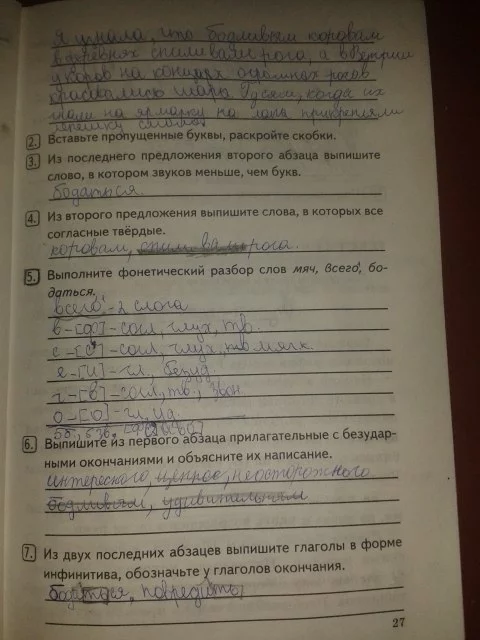 Я узнала, что бодливым коровам
в деревнях спиливали рога, а в Венгрии
у коров на концах огромных рогов
красовались шары. Гусям, когда их
гнали на ярмарку, на лапа прикрепляли
лепёшку смолы.
2. Вставьте пропущенные буквы, раскройте скобки.
3. Из последнего предложения второго абзаца выпишите
слово, в котором звуков меньше, чем букв.
бодаться.
4. Из второго предложения выпишите слова, в которых все
согласные твёрдые.
коровам, рога.
5. Выполните фонетический разбор слов мяч, всего, бо-
даться.
всего - 2 слога
в - [ф] - согл, глух, тв.
с - [с'] - согл, глух, тв мягк.
е - [и] - гл, безуд.
г - [в] - согл, тв, звон.
о - [о] - гл, уд.
5б, 5зв.
6. Выпишите из первого абзаца прилагательные с безудар-
ными окончаниями и объясните их написание.
интересного, ценное, неосторожного
бодливым, удивительным
7. Из двух последних абзацев выпишите глаголы в форме
инфинитива, обозначьте у глаголов окончания.
бодаться, повредить
27